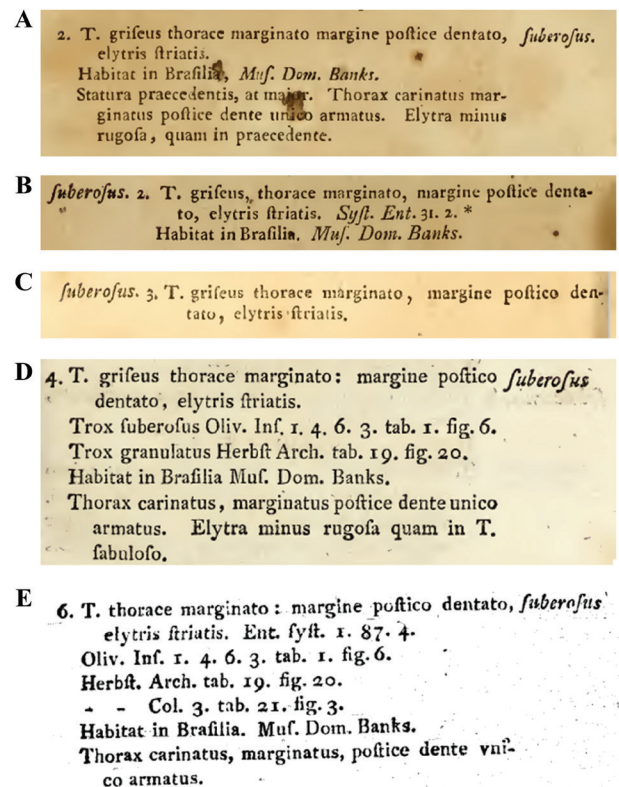 A
2. T. griſeus thorace marginato margine poſtice dentato, ſuberoſus.
elytris ſtriatis.
Habitat in Braſilia, Muſ. Dom. Banks.
Statura praecedentis, at major. Thorax carinatus mar-
ginatus poſtice dente unico armatus. Elytra minus
rugoſa, quam in praecedente.
B
ſuberoſus. 2. T. griſeus, thorace marginato, margine poſtice denta-
to, elytris ſtriatis. Syſt. Ent. 31. 2. *
Habitat in Braſilia. Muſ. Dom. Banks.
C
ſuberoſus. 3. T. griſeus thorace marginato, margine poſtico den-
tato, elytris ſtriatis.
D
4. T. griſeus thorace marginato: margine poſtico ſuberoſus
dentato, elytris ſtriatis.
Trox ſuberoſus Oliv. Inſ. 1. 4. 6. 3. tab. 1. fig. 6.
Trox granulatus Herbſt Arch. tab. 19. fig. 20.
Habitat in Braſilia Muſ. Dom. Banks.
Thorax carinatus, marginatus poſtice dente unico
armatus. Elytra minus rugoſa quam in T.
ſabuloſo.
E
6. T. thorace marginato: margine poſtico dentato, ſuberoſus
elytris ſtriatis. Ent. ſyſt. 1. 87. 4.
Oliv. Inſ. 1. 4. 6. 3. tab. 1. fig. 6.
Herbſt. Arch. tab. 19. fig. 20.
- - Col. 3. tab. 21. fig. 3.
Habitat in Braſilia. Muſ. Dom. Banks.
Thorax carinatus, marginatus, poſtice dente vni-
co armatus.